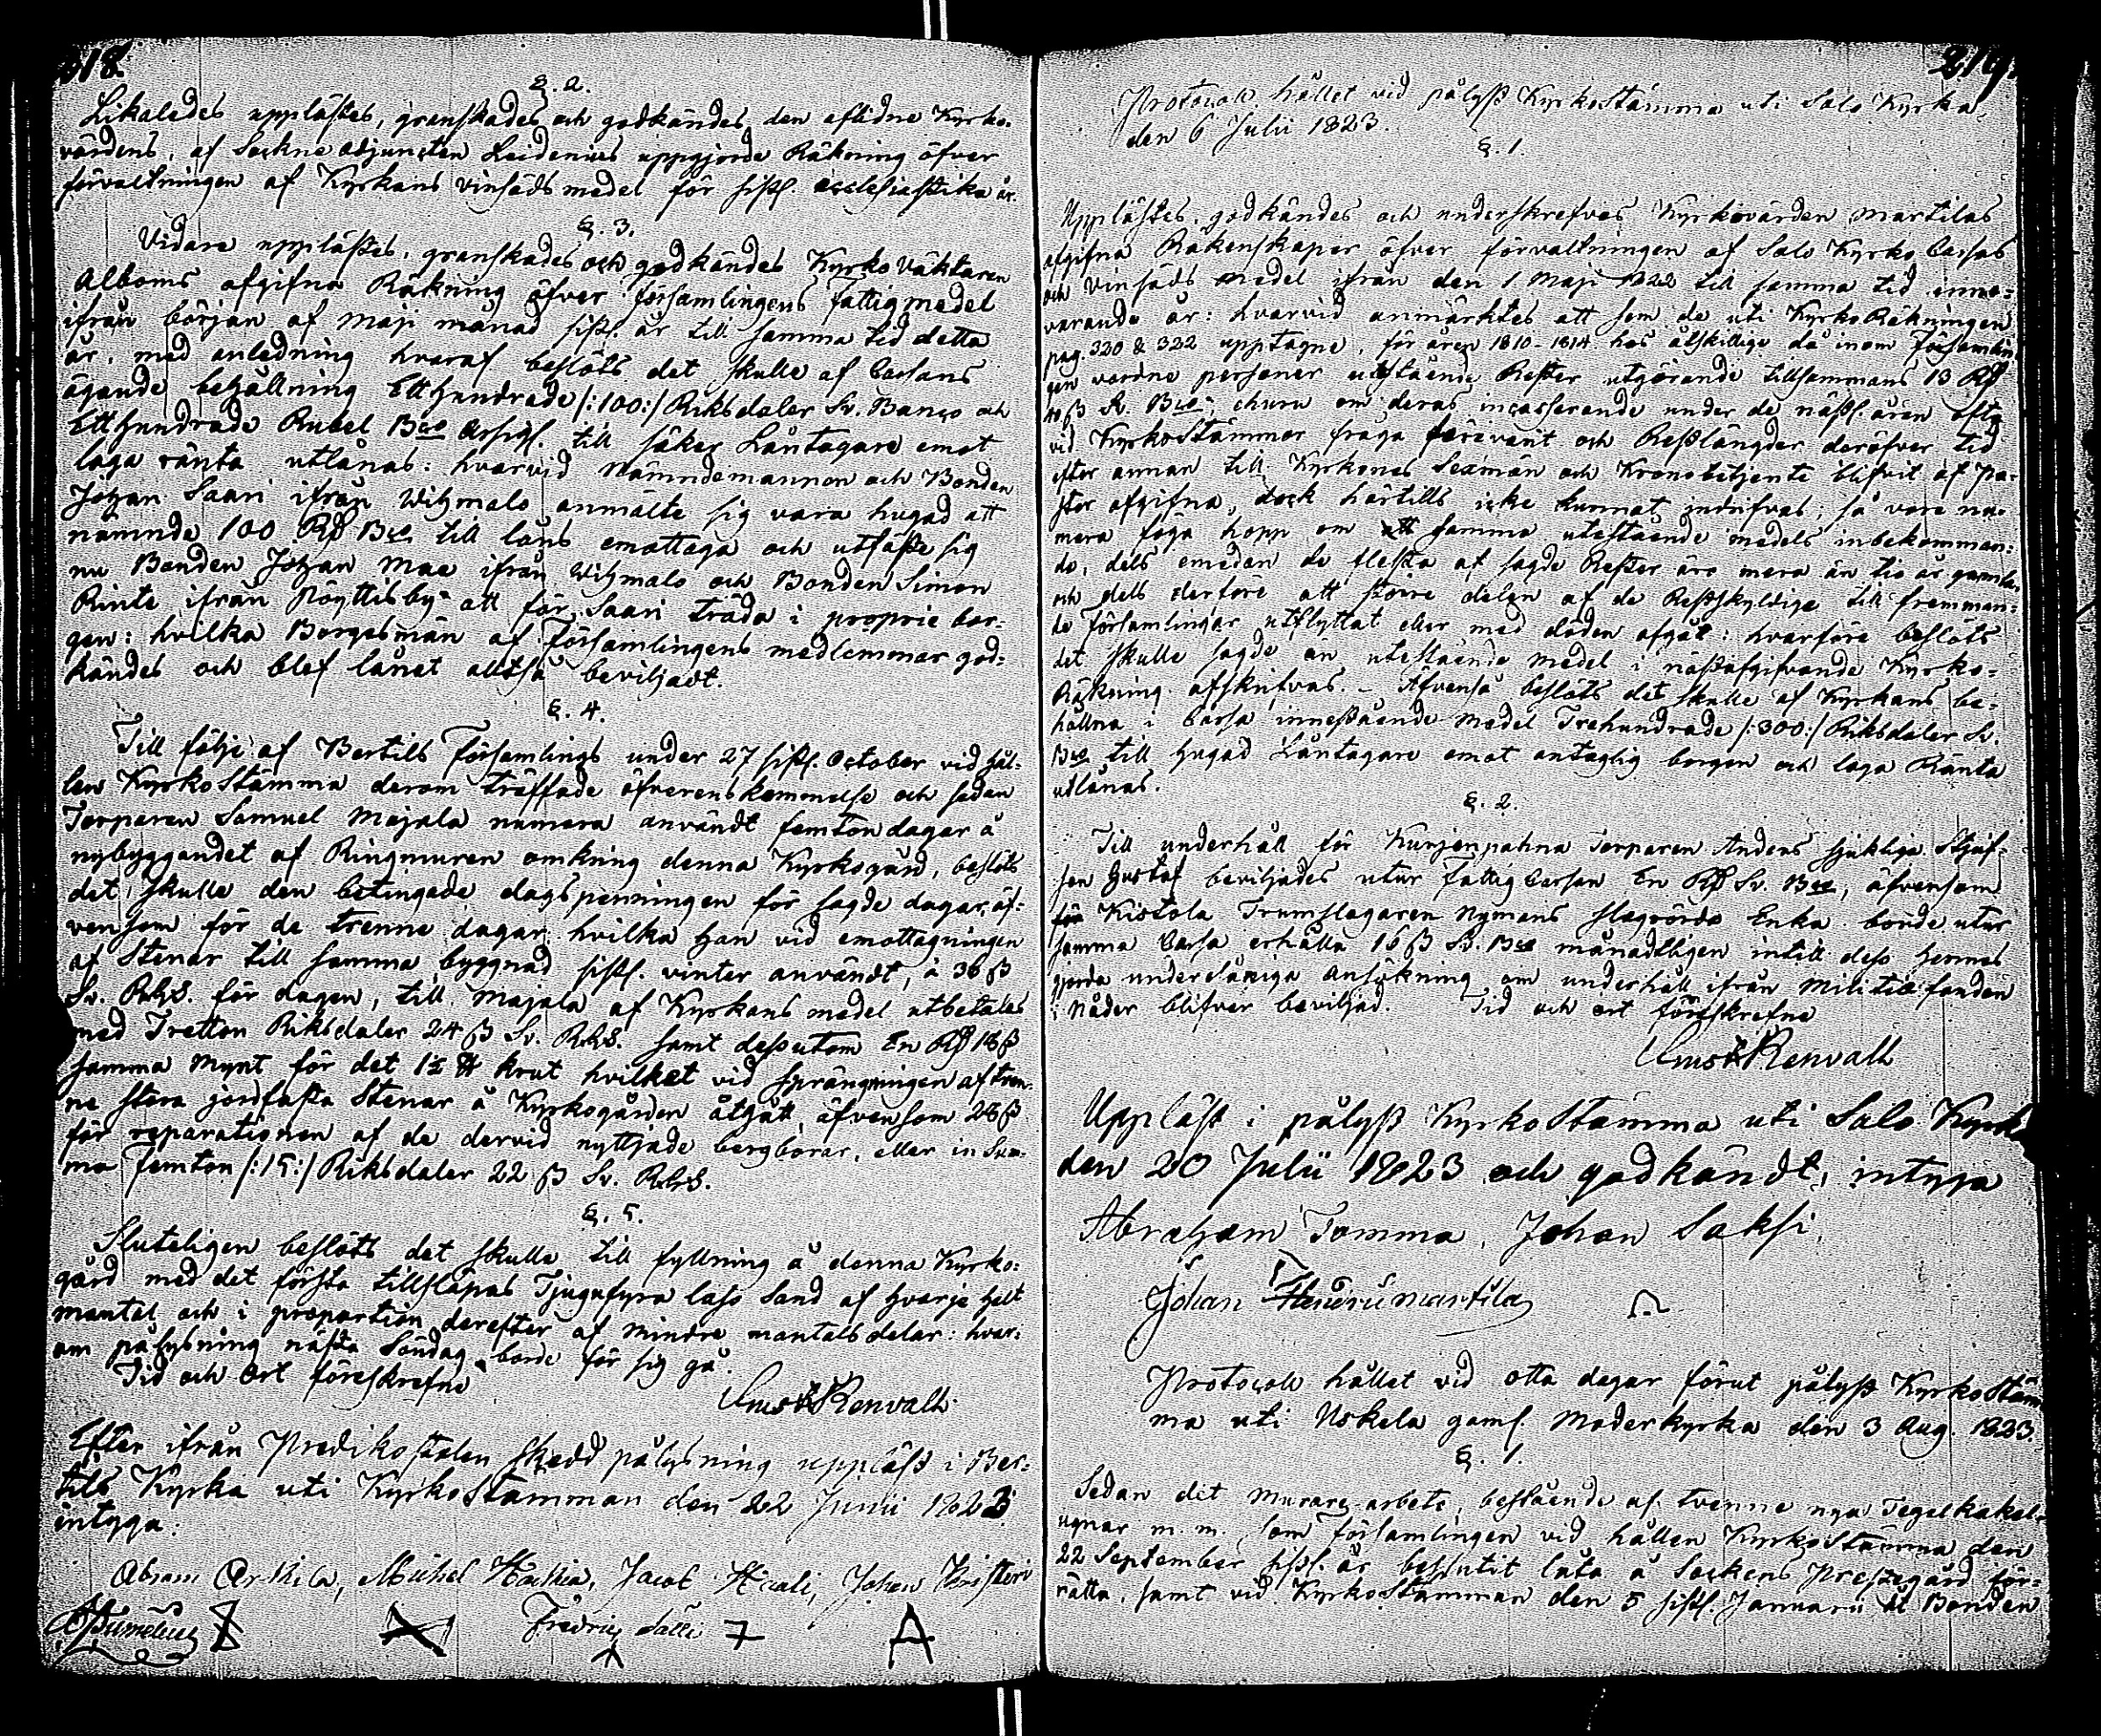 218.
§. 2.
Likaledes uppläстes, granskades och godkändes den aflidne Kyrko-
värdens, af Sockne Adjuncten Leidenius uppgjorde Räkning öfver
förvaltningen af Kyrkans vinsäds medel för sistl. ecclesiastika år.
§. 3.
Vidare upplästes, granskades och godkändes Kyrko Väktaren
Alboms afgifna Räkning öfver församlingens fattigmedel
ifrån början af Maji månad sistl. år till samma tid detta
år, med anledning hvaraf beslöts det skulle af Cassans
ägande behållning Etthundrade /:100:/ Riksdaler Sv. Banco och
Etthundrade Rubel Bco Assign. till säker Låntagare emot
laga ränta utlånas: hvarvid Nämndemannen och Bonden
Johan Saari ifrån Wihmalo anmälte sig vara hugad att
nämnde 100 Rd Bco till låns emottaga och utfäste sig
nu Bonden Johan Mae ifrån Wihmalo och Bonden Simon
Rinte ifrån Pöyttisby att för Saari träda i proprie bor-
gen: hvilka Borgesmän af Församlingens medlemmar god-
kändes och blef lånet alltså beviljadt.
§. 4.
Till följe af Bertils Församlings under 27 sistl. October vid hål-
len KyrkoStämma derom träffade öfverenskommelse och sedan
Torparen Samuel Majala numera användt femton dagar å
nybyggandet af Ringmuren omkring denna Kyrkogård, beslöts
det skulle den betingade dagspenningen för sagde dagar, äf-
vensom för de trenne dagar hvilka han vid emottagningen
af Stenar till samma byggnad sistl. vinter användt, à 36 ß
Sv. RhS. för dagen, till Majala af Kyrkans medel utbetalas
med Tretton Riksdaler 24 ß Sv. RhS. samt dessutom En Rd 18 ß
samma Mynt för det 1½ ℔ krut hvilket vid sprängningen af tren-
ne stora jordfasta Stenar å Kyrkogården åtgått, äfvensom 28 ß
för reparationen af de dervid nyttjade bergborar, eller in Sum-
ma Femton /:15:/ Riksdaler 22 ß Sv. RhS.
§. 5.
Sluteligen beslöts det skulle till fyllning å denna Kyrko-
gård med det första tillsläpas Tjugufyra lass Sand af hvarje helt
mantal och i proportion derefter af mindre mantalsdelar: hvar-
om pålysning nästa Söndag borde för sig gå.
Tid och Ort föreskrefne
Renvall.
Efter ifrån Predikostolen skedd pålysning uppläst i Ber-
tils Kyrka uti KyrkoStämman den 22 Junii 1823
intyga:
Abram Arkila, Michel Jacob Johan
Fredric Sälli
A
219.
Protocoll hållet vid pålyst KyrkoStämma uti Salo Kyrka,
den 6 Julii 1823.
§. 1.
Upplästes, godkändes och underskrefvos Kyrkovärden Martilas
afgifna Räkenskaper öfver förvaltningen af Salo Kyrko Cassas
och Vinsäds medel ifrån den 1 Maji 1822 till samma tid inne-
varande år: hvarvid anmärktes att som de uti KyrkoRäkningen
pag. 320 & 322 upptagne, för åren 1810-1814 hos åtskillige då inom Församlin-
gen vordne personer utestående Rester utgörande tillsammans 13 Rd
40 ß Sv. Bco, ehuru om deras incasserande under de nästl. åren ofta
vid KyrkoStämmor fråga förevarit och Restlängder deröfver tid
efter annan till Kyrkones Sexmän och Kronobetjente blifvit af Pa-
stor afgifna, dock härtills icke kunnat indrifvas; så vore nu-
mera foga hopp om samma utestående medels inbekomman-
de, dels emedan de flesta af sagde Rester äro mera än tio år gamla
och dels derföre att större delen af de Restskyldige till fremman-
de Församlingar utflyttat eller med döden afgåt: hvarföre beslöts
det skulle sagde utestående medel i nästafgifvande Kyrko-
Räkning afskrifvas. – Äfvenså beslöts det skulle af Kyrkans be-
hållna i Cassa innestående medel Trehundrade /:300:/ Riksdaler Sv.
Bco till hugad Låntagare emot antaglig borgen och laga Ränta
utlånas.
§. 2.
Till underhåll för Kurjenpahna Torparen Anders sjuklige Styf-
son Gustaf beviljades utur Fattig Cassan En Rd Sv. Bco, äfvensom
för Kistola Trumslagaren Nymans slagrörda Enka borde utur
samma Cassa erhålla 16 ß Sv. Bco månadtligen intill dess hennes
gjorda underdåniga ansökning om underhåll ifrån Militie fonden
i Nåder blifver beviljad. Tid och ort föreskrefne
Renvall
Uppläst i pålyst KyrkoStämma uti Salo Kyrka
den 20 Julii 1823 och godkändt, intyga
Abraham Tomma, Johan Saksi,
Johan Martila
Protocoll hållet vid otta dagar förut pålyst KyrkoStäm-
ma uti Uskela gaml. Moderkyrka den 3 Aug. 1823.
§. 1.
Sedan det Murare arbete, bestående af tvenne nya Tegelkakel-
ugnar m. m. som Församlingen vid hållen KyrkoStämma den
22 September sistl. år beslutit låta å Sockens Prestegård för-
rätta, samt vid KyrkoStämman den 5 sistl. Januarii åt Bonden